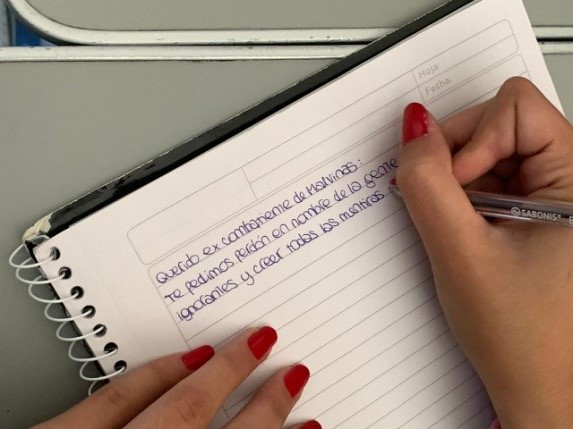 Hoja:
Fecha:
Querido ex combatiente de Malvinas:
Te pedimos perdón en nombre de la gente
ignorantes y creer todas las mentiras
SABONIS